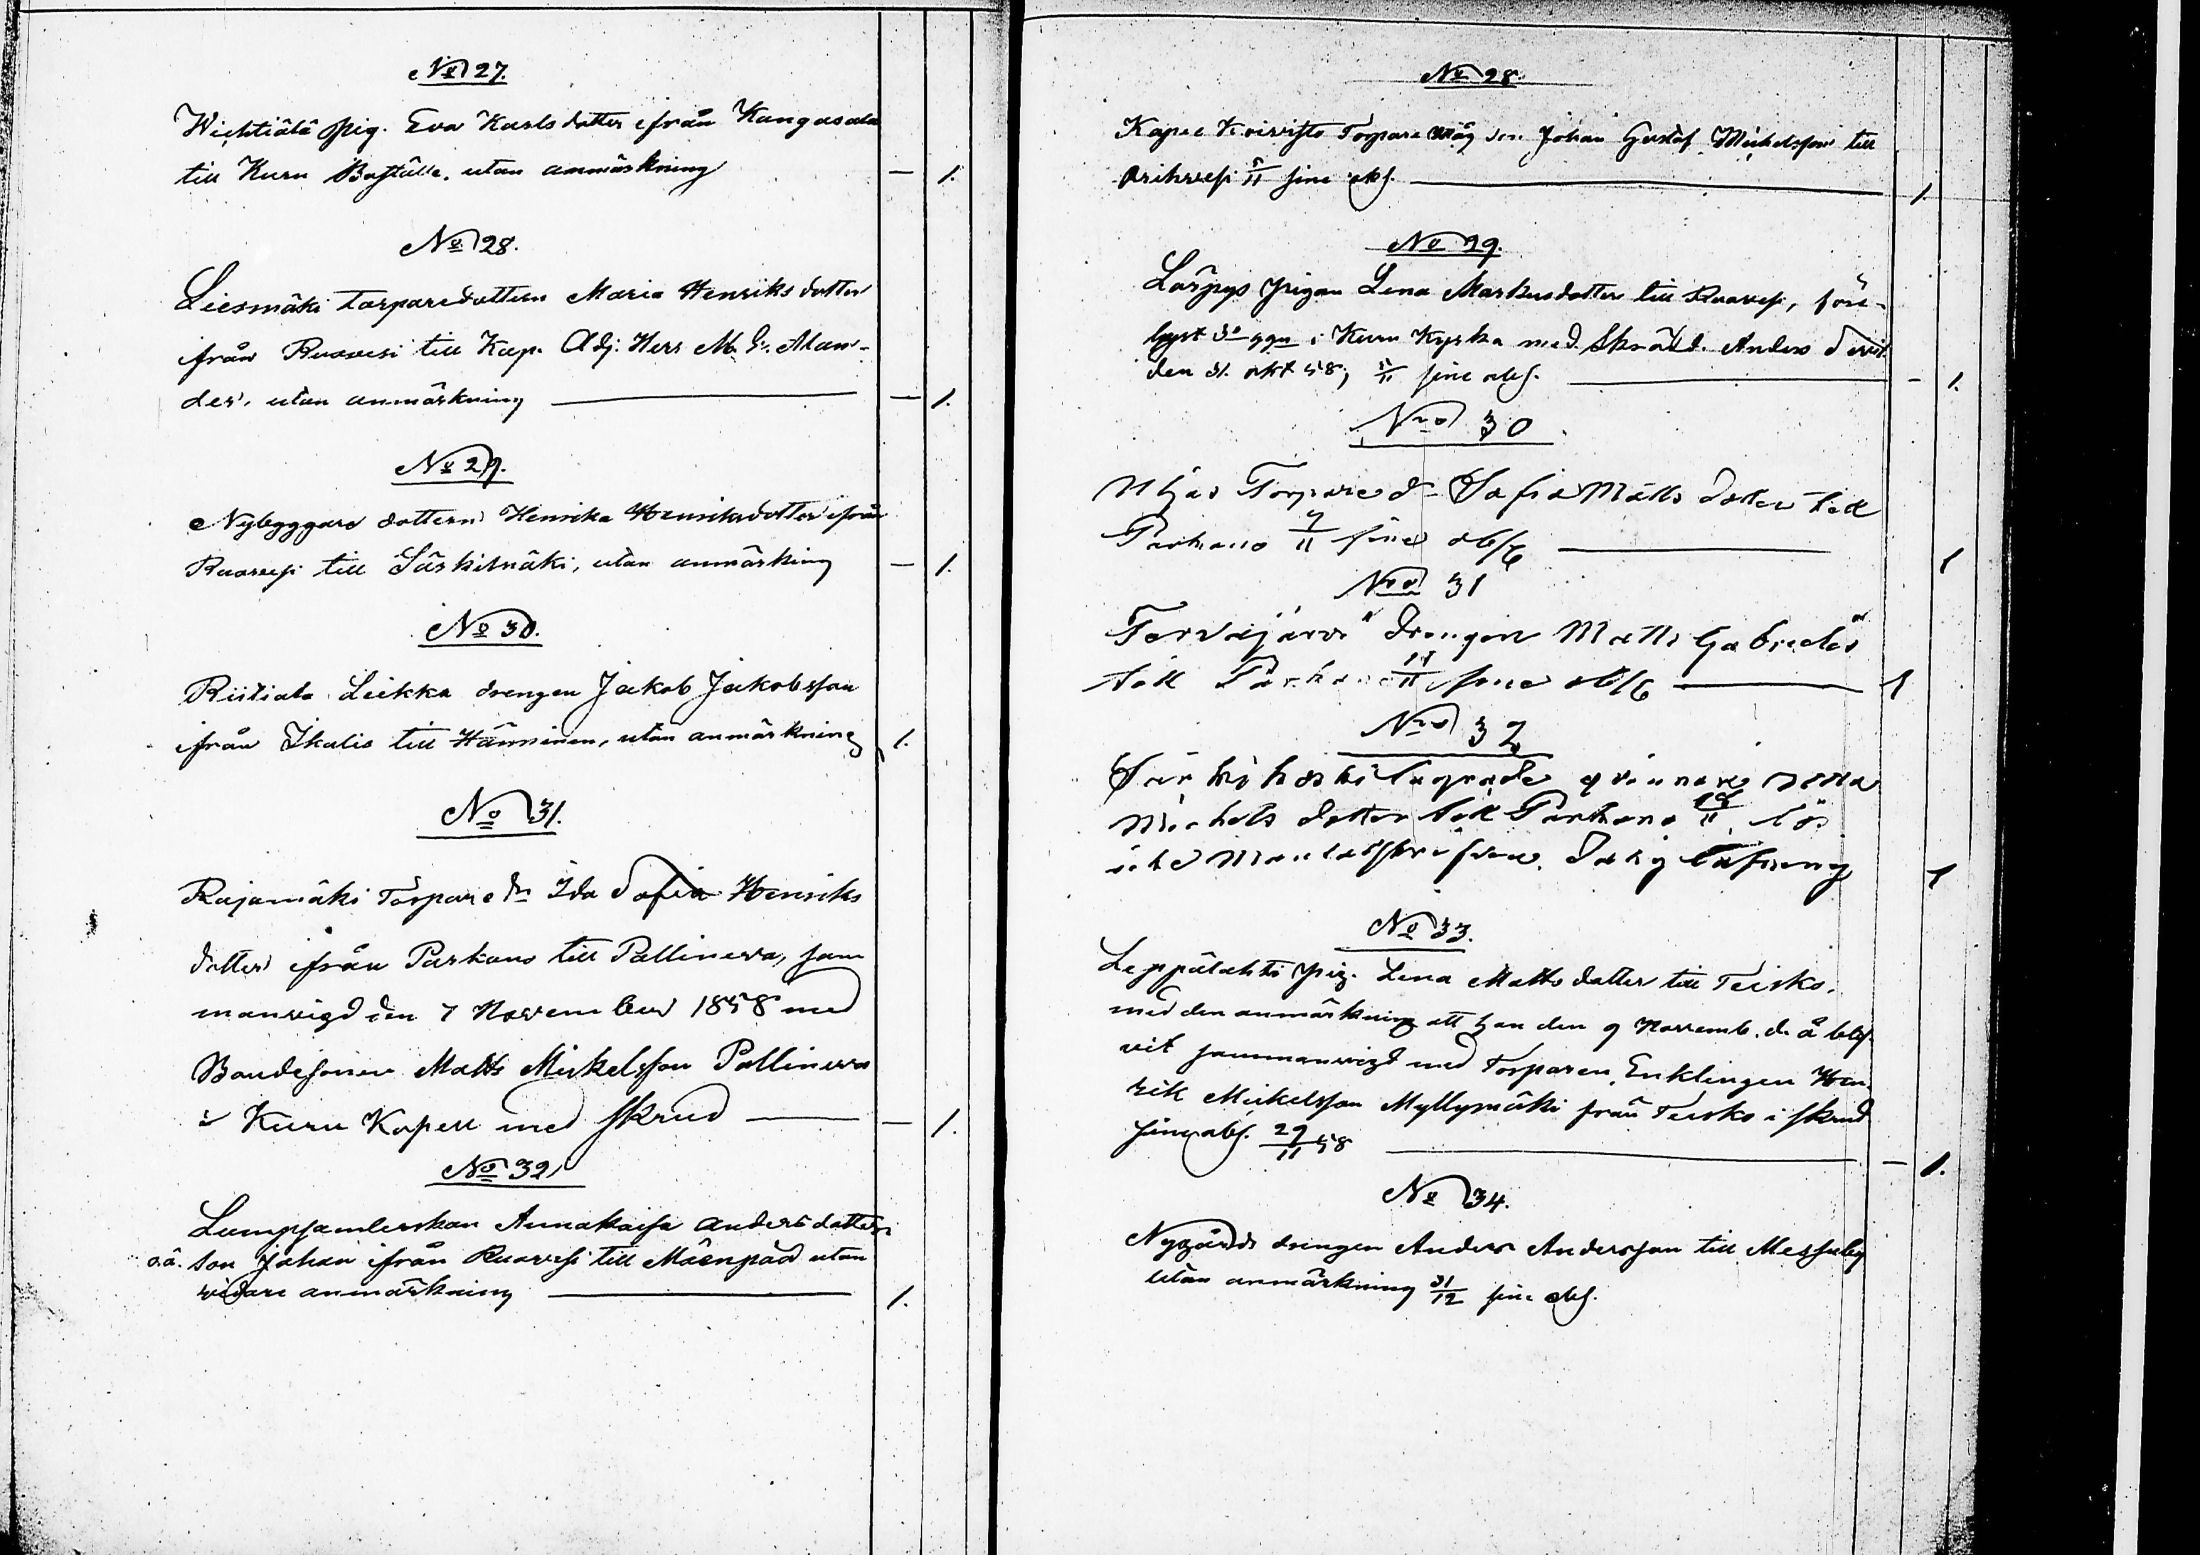 No 27.
Wichtiälä pig. Eva Karlsdotter ifrån Kangasala
till Kuru Boställe, utan anmärkning — 1.
No 28.
Liesmäki torparedottern Maria Henriksdotter
från Ruovesi till Kap. Adj. Herr M. G. Alan-
der, utan anmärkning — 1.
No 29.
Nybyggare dottern Henrika Henriksdotter ifrån
Ruovesi till Särkilmäki, utan anmärkning — 1.
No 30.
Riitiala Leikka drengen Jakob Jakobsson
ifrån Ikalis till Hänninen, utan anmärkning 1.
No 31.
Rajamäki Torpare dr Ida Sofia Henriks
dotter ifrån Parkano till Pallineva, sam
manvigd den 7 November 1858 med
Bondesonen Matts Mickelsson Pallineva
i Kuru Kapell med skrud — 1.
No 32
Lumpsamlerskan Annakaisa Andersdotters
o.ä. son Johan ifrån Ruovesi till Mäenpää utan
vidare anmärkning 1.
No 28.
Koivisto Torpare måg Johan Gustaf Michelsson till
Orihvesi 5/11 sine abs. 1
No 29.
Lärpys pigan Lena Markusdotter till Ruovesi, före-
lyst 3e ggn i Kuru Kyrka med Skrädd. Anders
den 31. okt 58; 5/11 sine abs. — 1.
Nro 30
Torpare d. Sofia Matts dotter till
Parkano 7/11 sine abs 1
Nro 31
Tervajärvi drengen Matts Gabriels
till Parkano 11 sine abs 1
Nro 32
qvinnan
Michels dotter till Parkano 11
1
No 33.
Leppälahti pig. Lena Mattsdotter till Teisko,
med den anmärkning att hon den 9 Novemb. d. å bli-
vit sammanvigd med Torparen, Enklingen Hen
rik Mickelsson Myllymäki från Teisko i skrud
sine abs. 29/11 58 — 1.
No 34.
Nygårds drengen Anders Andersson till Messuby
utan anmärkning 31/12 sine abs.